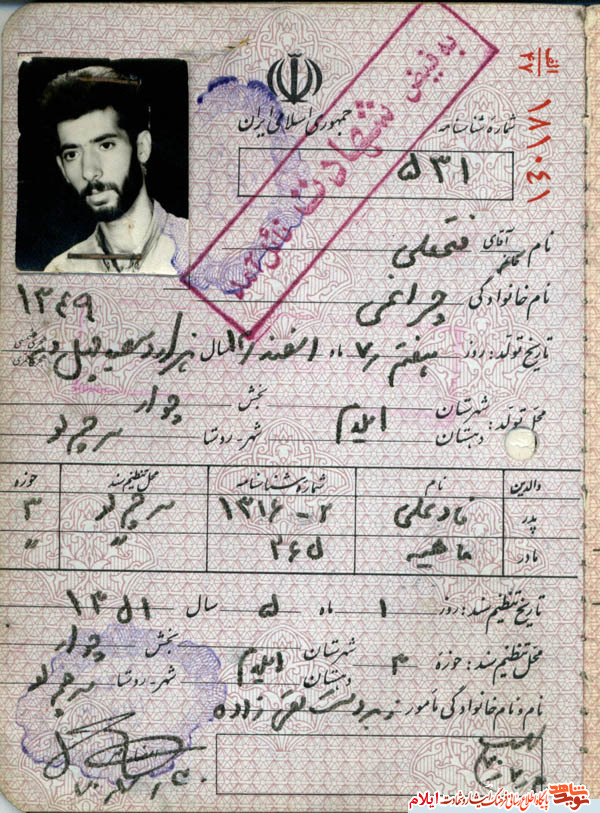 الف
۳۷
۱۸۱۰۴۱
جمهوری اسلامی ایران
به فیض شهادت نائل شد
شماره شناسنامه
۵۳۱
نام آقای فتحعلی
نام خانوادگی چراغی
۱۳۴۹
تاریخ تولد: روز هفتم ۷ ماه اسفند ۱۲ سال هزار و سیصد و چهل و نه
محل تولد: شهرستان ایلام بخش چوار
دهستان شهر-روستا سرچم لو
والدین نام شماره شناسنامه محل تنظیم سند حوزه
پدر نادعلی ۲-۱۳۱۶ سرچم لو ۳
مادر ماهیه ۳۶۵ " "
تاریخ تنظیم سند: روز ۱ ماه ۵ سال ۱۳۵۱
محل تنظیم سند: حوزه ۳ شهرستان ایلام بخش چوار
دهستان شهر-روستا سرچم لو
نام و نام خانوادگی مأمور
نوید شاهد
پایگاه اطلاع رسانی فرهنگ ایثار و شهادت ایلام